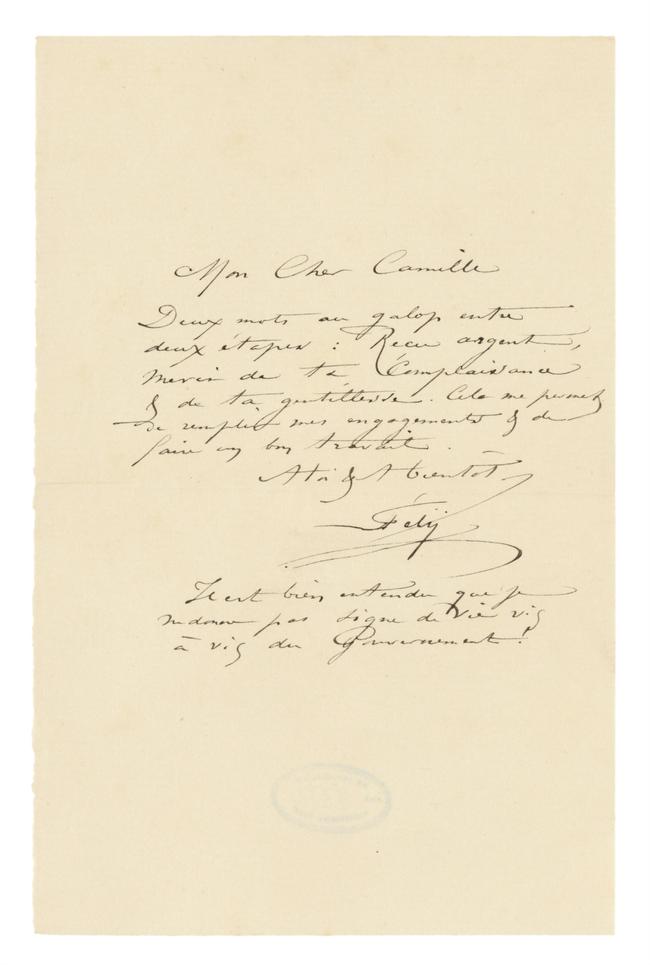 Mon Cher Camille
Deux mots au galop entre
deux étapes : Recu argent,
Merci de ta Complaisance
& de ta gentillesse. Cela me permet
de remplir mes engagements & de
faire un bon travail.
A toi & A bientôt
Fély
Il est bien entendu que je
ne donne pas signe de vie vis
à vis du Gouvernement !